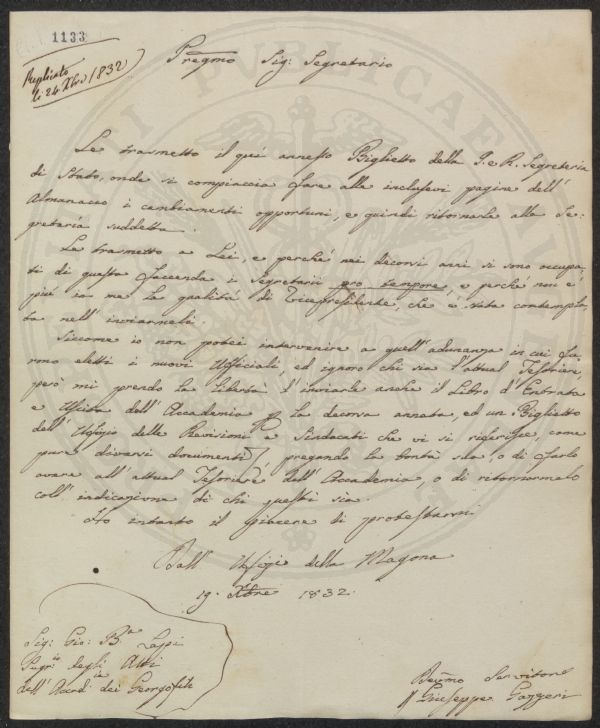 1133
Replicato
li 24 Xbre 1832
Pregmo Sig: Segretario
Le trasmetto il quì annesso Biglietto della I. e R. Segreteria
di Stato, onde si compiaccia fare alle inclusevi pagine dell'
Almanacco i cambiamenti opportuni, e quindi ritornarle alla Se:
greteria suddetta.
Le trasmetto a Lei, e perchè nei decorsi anni si sono occupa:
ti di questa faccenda i Segretarii pro tempore, e perchè non è
più in me la qualità di Vicepresidente, che è stata contempla:
ta nell' inviarmeli.
Siccome io non potei intervenire a quell' adunanza in cui fu:
rono eletti i nuovi Uffiziali, ed ignoro chi sia l' attual Tesoriere,
però mi prendo la libertà d' inviarle anche il Libro d' Entrata
e Uscita dell' Accademia per la decorsa annata, ed un Biglietto
dell' Ufizio delle Revisioni e Sindacati che vi si riferisce, come
pure diversi documenti, pregando la bontà sua, o di farlo
avere all' attual Tesoriere dell' Accademia, o di ritornarmelo
coll' indicazione di chi questi sia.
Ho intanto il piacere di protestarmi
Dall' Ufizio della Magona
19. Xbre 1832.
Sig: Gio: Ba. Lappi
Segrio degli Atti
dell' Accadia dei Georgofili
Devmo Servitore
Giuseppe Gazzeri